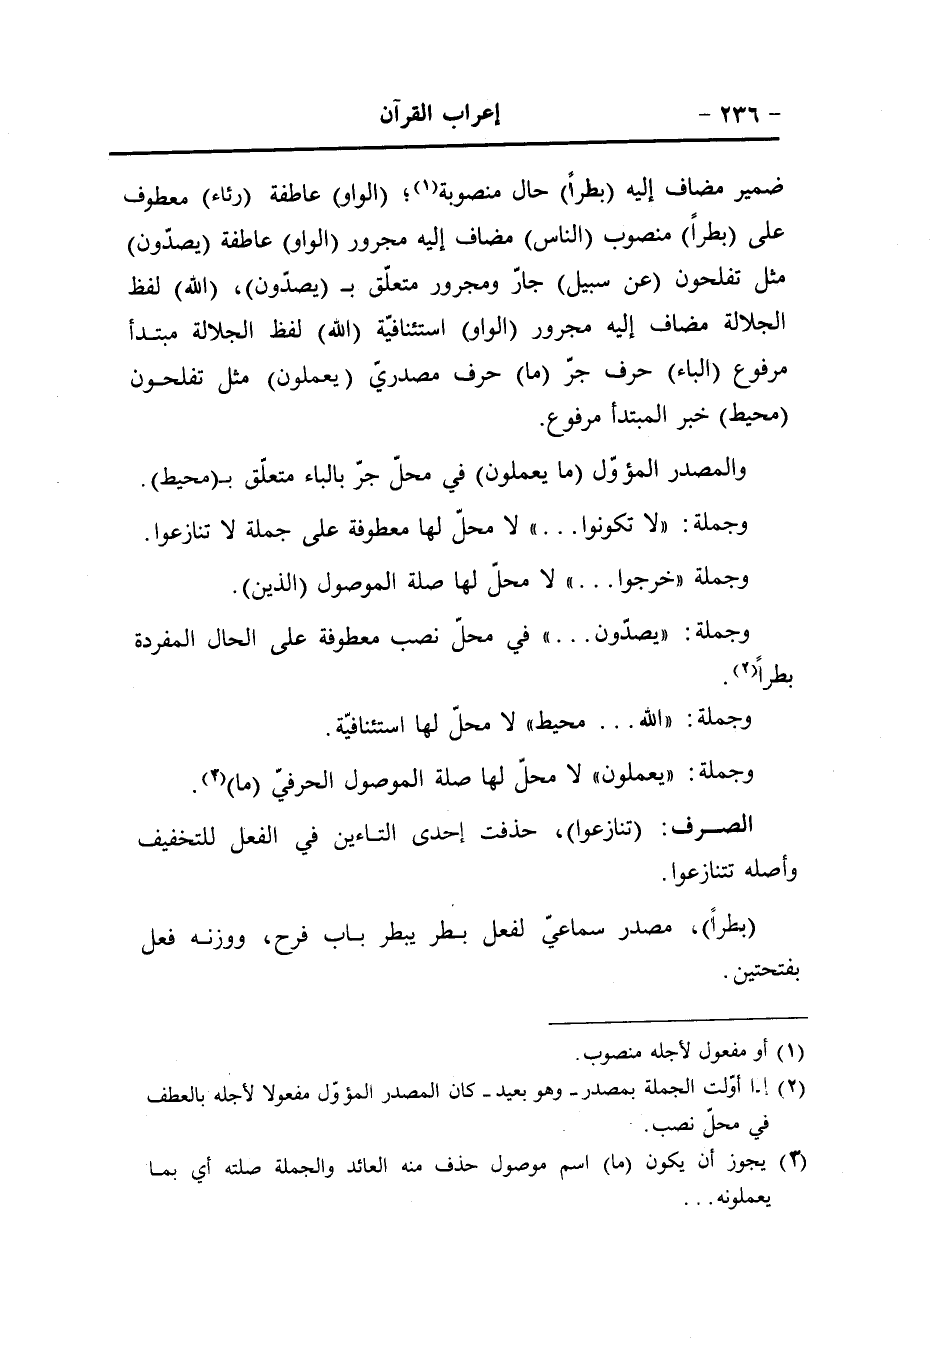 - ٢٣٦ - إعراب القرآن
ضمير مضاف إليه (بطراً) حال منصوبة(١)؛ (الواو) عاطفة (رئاء) معطوف
على (بطراً) منصوب (الناس) مضاف إليه مجرور (الواو) عاطفة (يصدّون)
مثل تفلحون (عن سبيل) جارّ ومجرور متعلّق بـ (يصدّون)، (الله) لفظ
الجلالة مضاف إليه مجرور (الواو) استئنافيّة (الله) لفظ الجلالة مبتـدأ
مرفوع (الباء) حرف جرّ (ما) حرف مصدريّ (يعملون) مثل تفلحـون
(محيط) خبر المبتدأ مرفوع.
والمصدر المؤوّل (ما يعملون) في محلّ جرّ بالباء متعلّق بـ(محيط).
وجملة: «لا تكونوا...» لا محلّ لها معطوفة على جملة لا تنازعوا.
وجملة «خرجوا...» لا محلّ لها صلة الموصول (الذين).
وجملة: «يصدّون...» في محلّ نصب معطوفة على الحال المفردة
بطراً(٢).
وجملة: «الله... محيط» لا محلّ لها استئنافيّة.
وجملة: «يعملون» لا محلّ لها صلة الموصول الحرفيّ (ما)(٣).
الصـرف: (تنازعوا)، حذفت إحدى التـاءين في الفعل للتخفيف
وأصله تتنازعوا.
(بطراً)، مصدر سماعيّ لفعل بـطر يبطر بـاب فرح، ووزنـه فعل
بفتحتين.
(١) أو مفعول لأجله منصوب.
(٢) إذا أوّلت الجملة بمصدر ـ وهو بعيد ـ كان المصدر المؤوّل مفعولا لأجله بالعطف
في محلّ نصب.
(٣) يجوز أن يكون (ما) اسم موصول حذف منه العائد والجملة صلته أي بمـا
يعملونه...